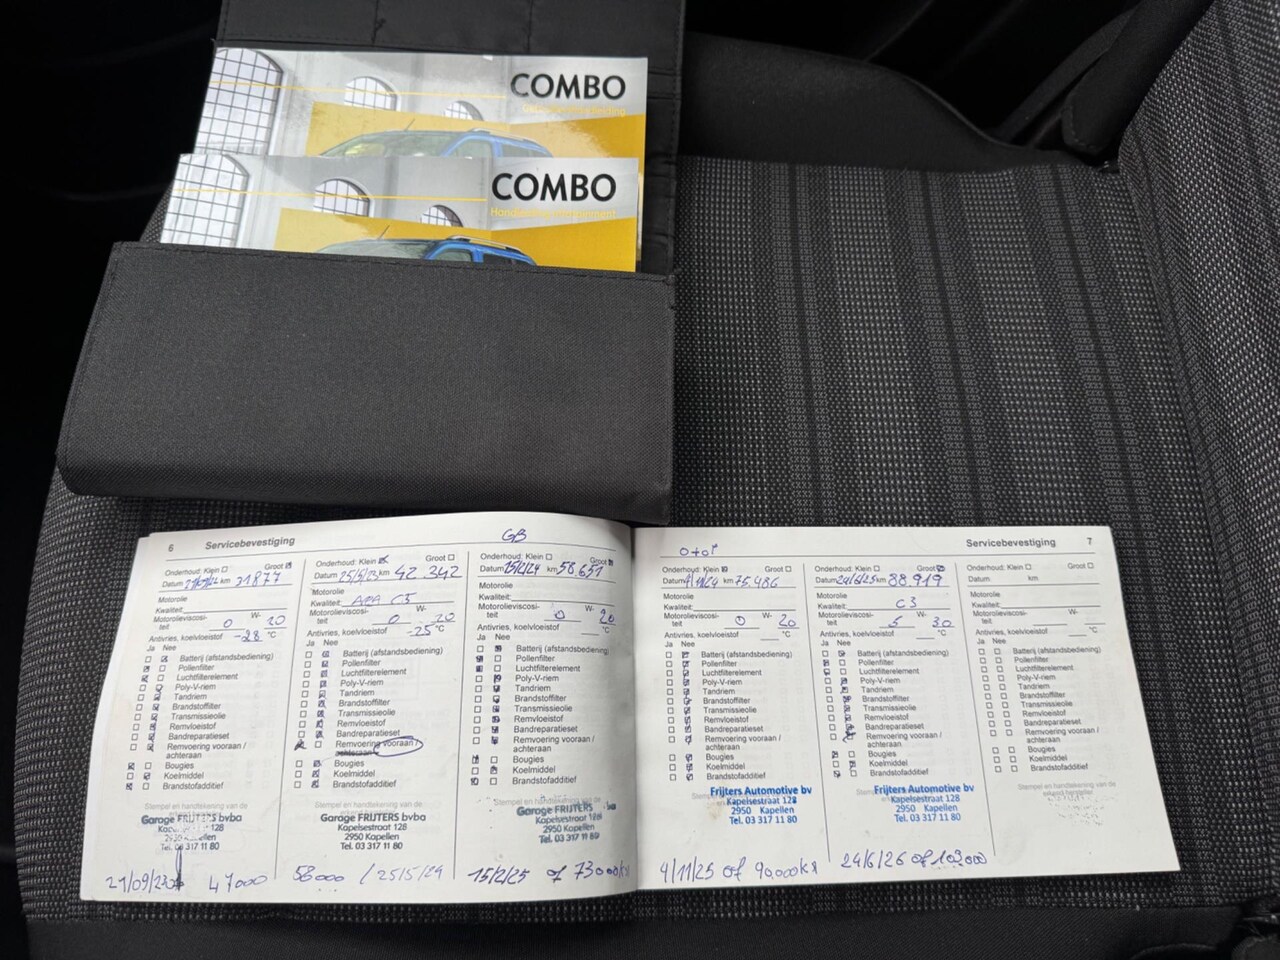 COMBO
COMBO
6 Servicebevestiging
GB
Onderhoud: Klein Groot
Datum km 31877
Motorolie
Kwaliteit:
Motorolieviscosi-
teit 0 W- 20
Antivries, koelvloeistof -28 °C
Ja Nee
Batterij (afstandsbediening)
Pollenfilter
Luchtfilterelement
Poly-V-riem
Tandriem
Brandstoffilter
Transmissieolie
Remvloeistof
Bandreparatieset
Remvoering vooraan /
achteraan
Bougies
Koelmiddel
Brandstofadditief
Stempel en handtekening van de
Garage FRIJTERS bvba
Kapelsestraat 128
2950 Kapellen
Tel. 03 317 11 80
47000
Onderhoud: Klein Groot
Datum 25/5/23 km 42.342
Motorolie
Kwaliteit: C5
Motorolieviscosi-
teit 0 W- 20
Antivries, koelvloeistof -25 °C
Ja Nee
Batterij (afstandsbediening)
Pollenfilter
Luchtfilterelement
Poly-V-riem
Tandriem
Brandstoffilter
Transmissieolie
Remvloeistof
Bandreparatieset
Remvoering vooraan /
achteraan
Bougies
Koelmiddel
Brandstofadditief
Stempel en handtekening van de
Garage FRIJTERS bvba
Kapelsestraat 128
2950 Kapellen
Tel. 03 317 11 80
58000 / 25/5/24
Onderhoud: Klein Groot
Datum 15/2/24 km 58.651
Motorolie
Kwaliteit:
Motorolieviscosi-
teit 0 W- 20
Antivries, koelvloeistof °C
Ja Nee
Batterij (afstandsbediening)
Pollenfilter
Luchtfilterelement
Poly-V-riem
Tandriem
Brandstoffilter
Transmissieolie
Remvloeistof
Bandreparatieset
Remvoering vooraan /
achteraan
Bougies
Koelmiddel
Brandstofadditief
Stempel en handtekening van de
Garage FRIJTERS bvba
Kapelsestraat 128
2950 Kapellen
Tel. 03 317 11 80
15/2/25 of 73000
Servicebevestiging 7
Onderhoud: Klein Groot
Datum km 75.486
Motorolie
Kwaliteit:
Motorolieviscosi-
teit 0 W- 20
Antivries, koelvloeistof °C
Ja Nee
Batterij (afstandsbediening)
Pollenfilter
Luchtfilterelement
Poly-V-riem
Tandriem
Brandstoffilter
Transmissieolie
Remvloeistof
Bandreparatieset
Remvoering vooraan /
achteraan
Bougies
Koelmiddel
Brandstofadditief
Frijters Automotive bv
Kapelsestraat 128
2950 Kapellen
Tel. 03 317 11 80
4/11/25 of 90.000
Onderhoud: Klein Groot
Datum 24/6/25 km 88.919
Motorolie
Kwaliteit: C3
Motorolieviscosi-
teit 5 W- 30
Antivries, koelvloeistof °C
Ja Nee
Batterij (afstandsbediening)
Pollenfilter
Luchtfilterelement
Poly-V-riem
Tandriem
Brandstoffilter
Transmissieolie
Remvloeistof
Bandreparatieset
Remvoering vooraan /
achteraan
Bougies
Koelmiddel
Brandstofadditief
Frijters Automotive bv
Kapelsestraat 128
2950 Kapellen
Tel. 03 317 11 80
24/6/26 of
Onderhoud: Klein Groot
Datum km
Motorolie
Kwaliteit:
Motorolieviscosi-
teit W-
Antivries, koelvloeistof °C
Ja Nee
Batterij (afstandsbediening)
Pollenfilter
Luchtfilterelement
Poly-V-riem
Tandriem
Brandstoffilter
Transmissieolie
Remvloeistof
Bandreparatieset
Remvoering vooraan /
achteraan
Bougies
Koelmiddel
Brandstofadditief